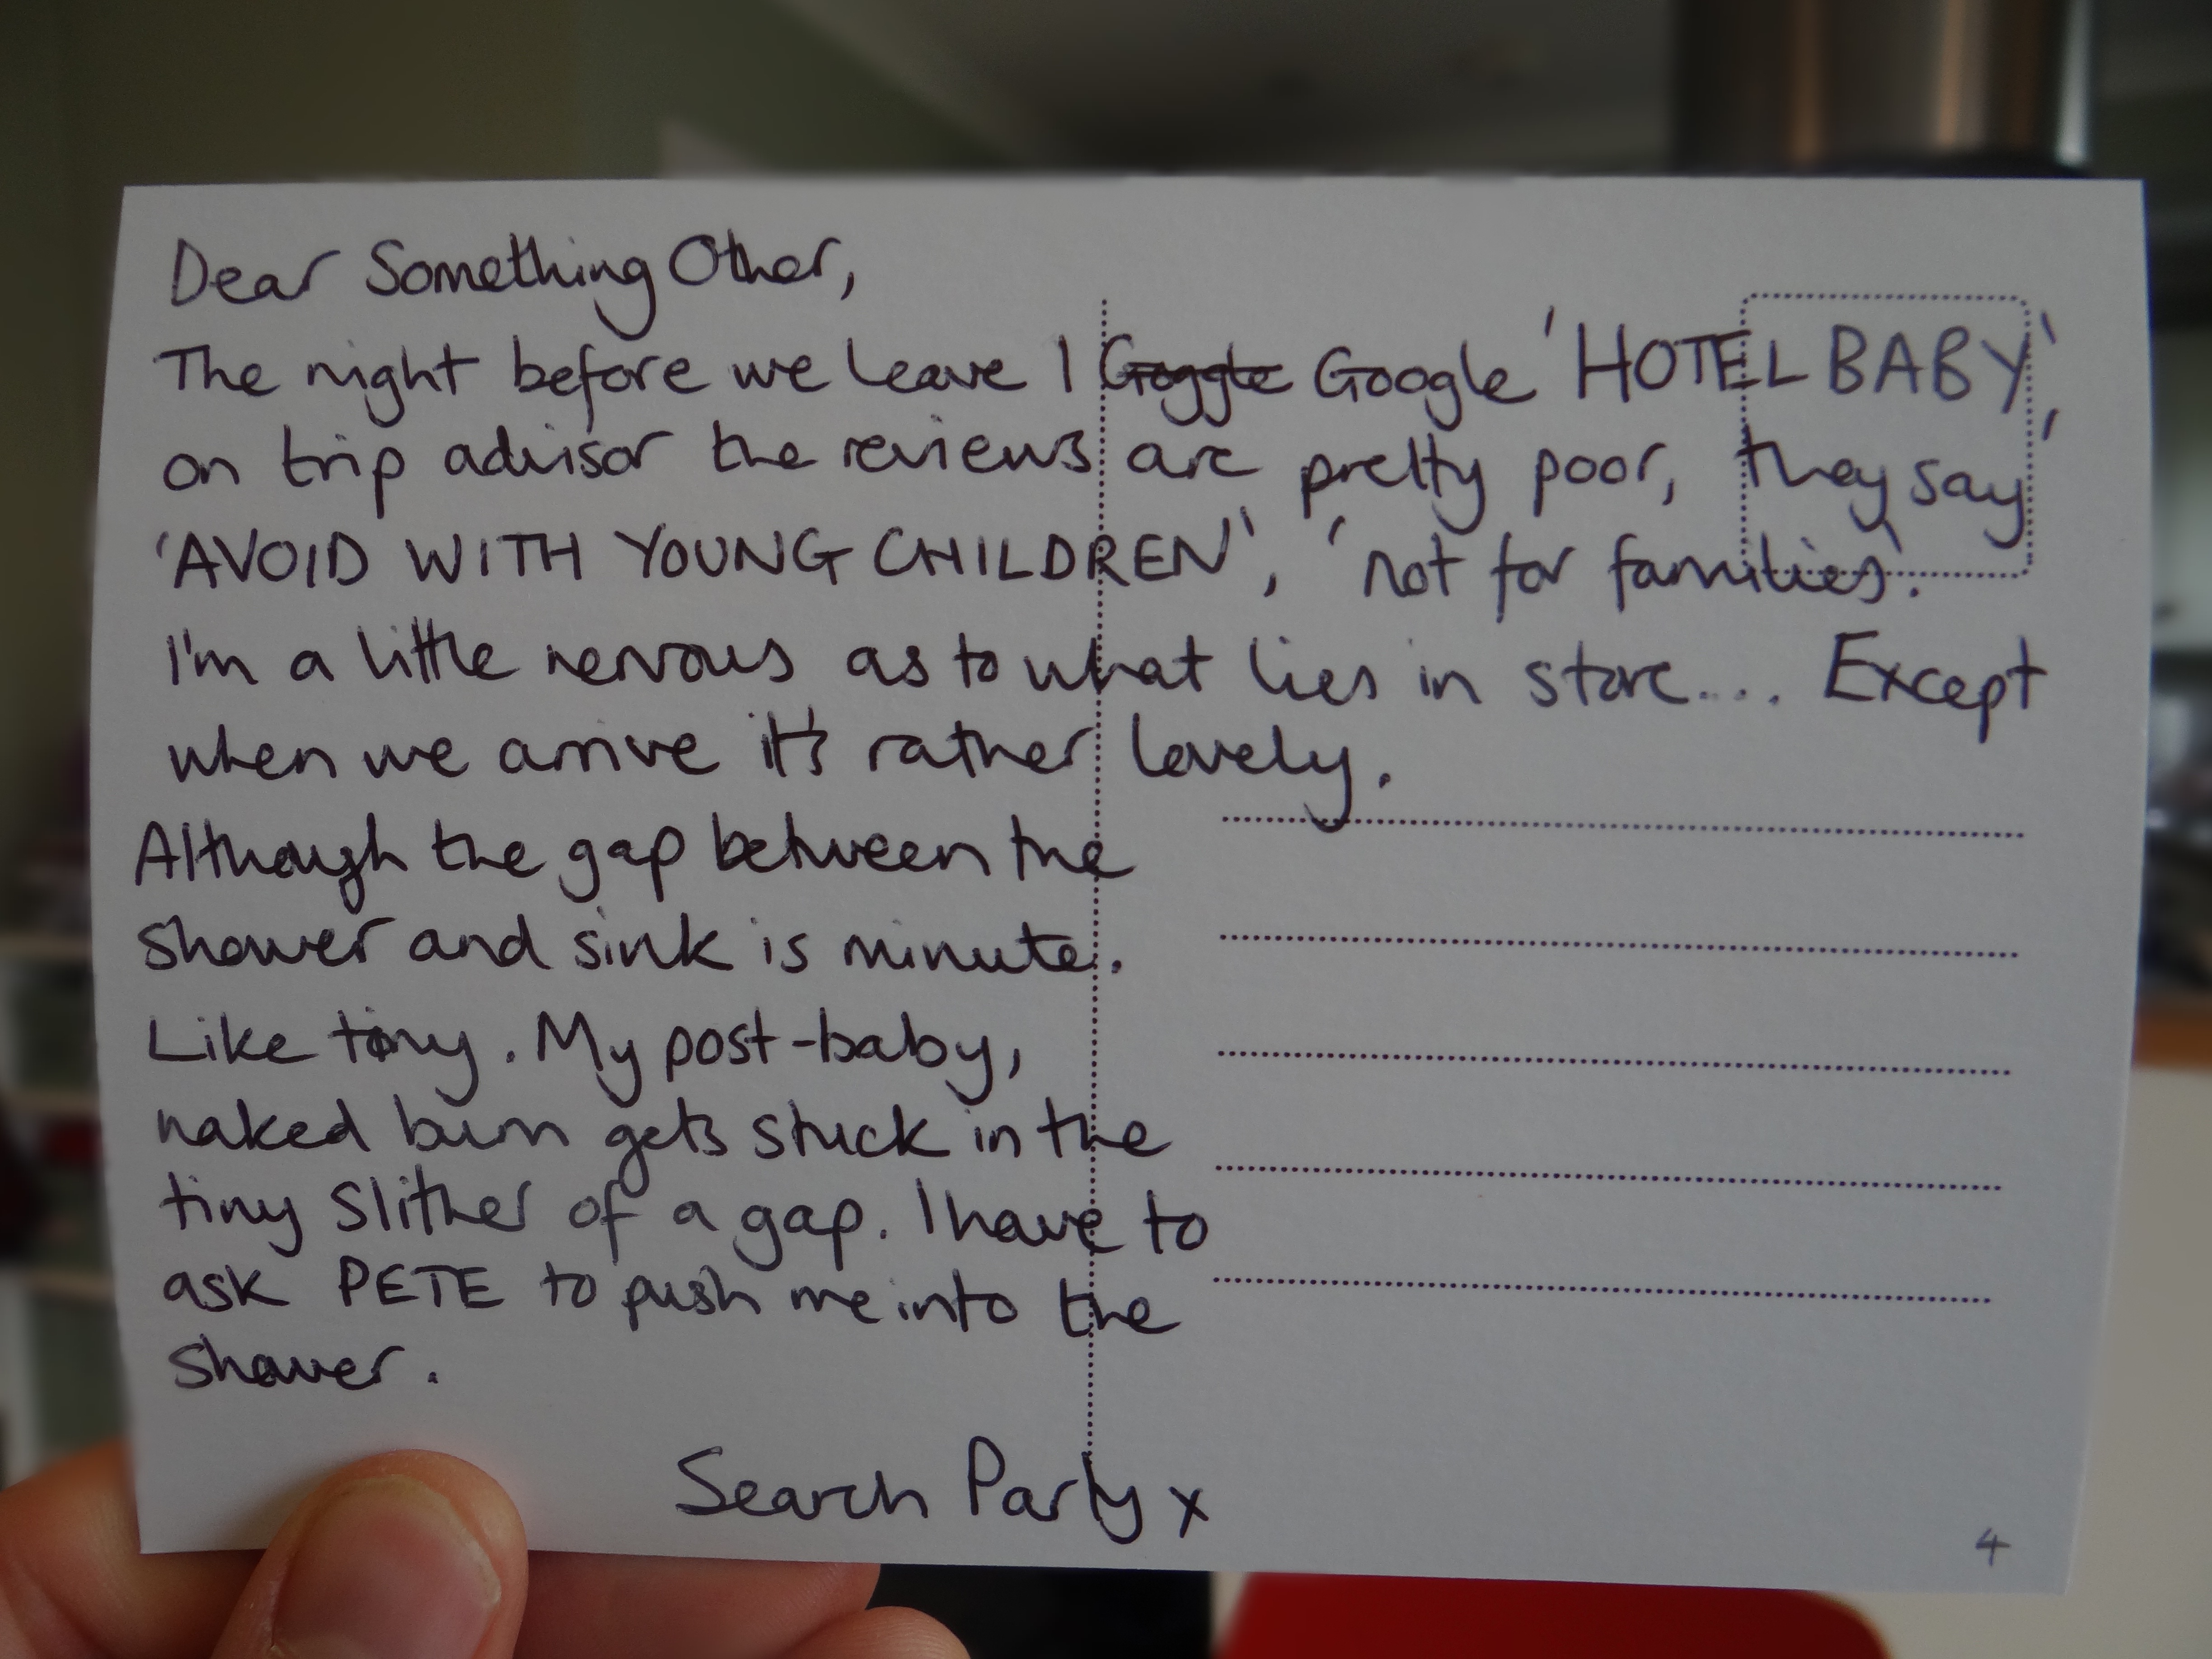 Dear Something Other,
The night before we leave I Goggle Google 'HOTEL BABY',
on trip advisor the reviews are pretty poor, they say
'AVOID WITH YOUNG CHILDREN', 'not for families'.
I'm a little nervous as to what lies in store.... Except
when we arrive it's rather lovely.
Although the gap between the
shower and sink is minute.
Like tiny. My post-baby,
naked bum gets stuck in the
tiny slither of a gap. I have to
ask PETE to push me into the
shower.
Search Party x
4